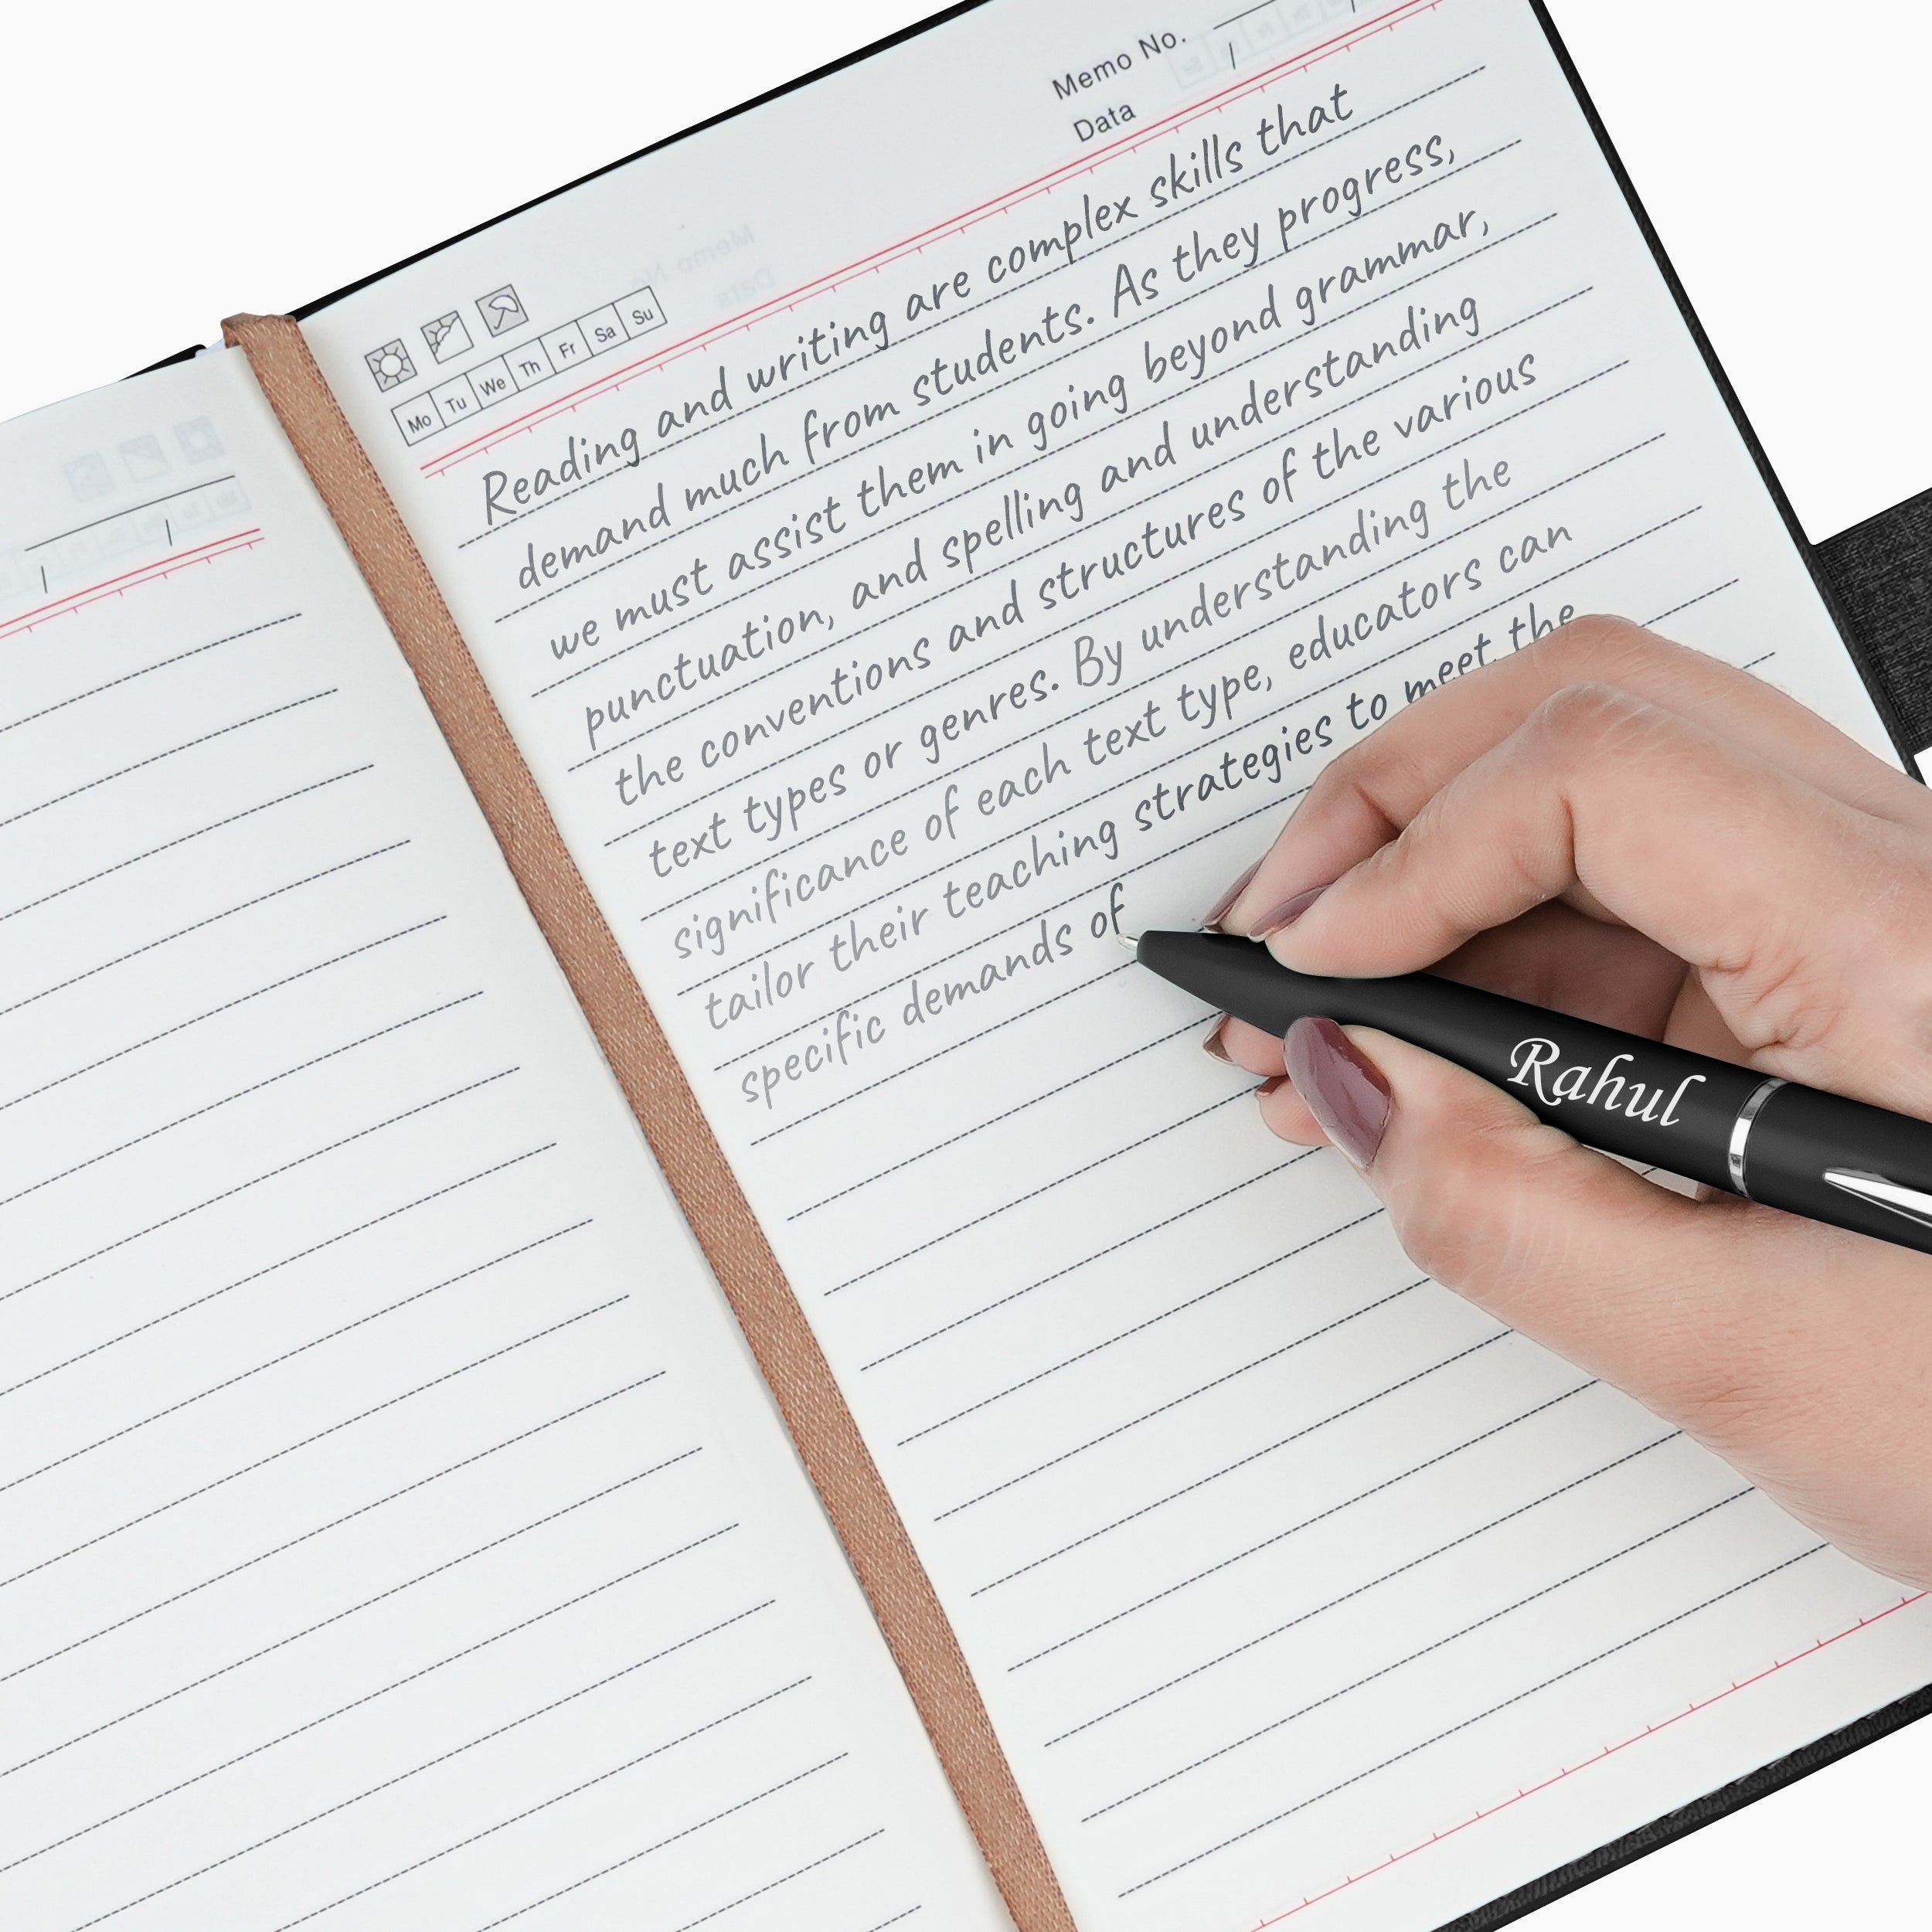 Memo No.
/ /
Data
Mo Tu We Th Fr Sa Su
Reading and writing are complex skills that
demand much from students. As they progress,
we must assist them in going beyond grammar,
punctuation, and spelling and understanding
the conventions and structures of the various
text types or genres. By understanding the
significance of each text type, educators can
tailor their teaching strategies to meet the
specific demands of
Rahul
/ /